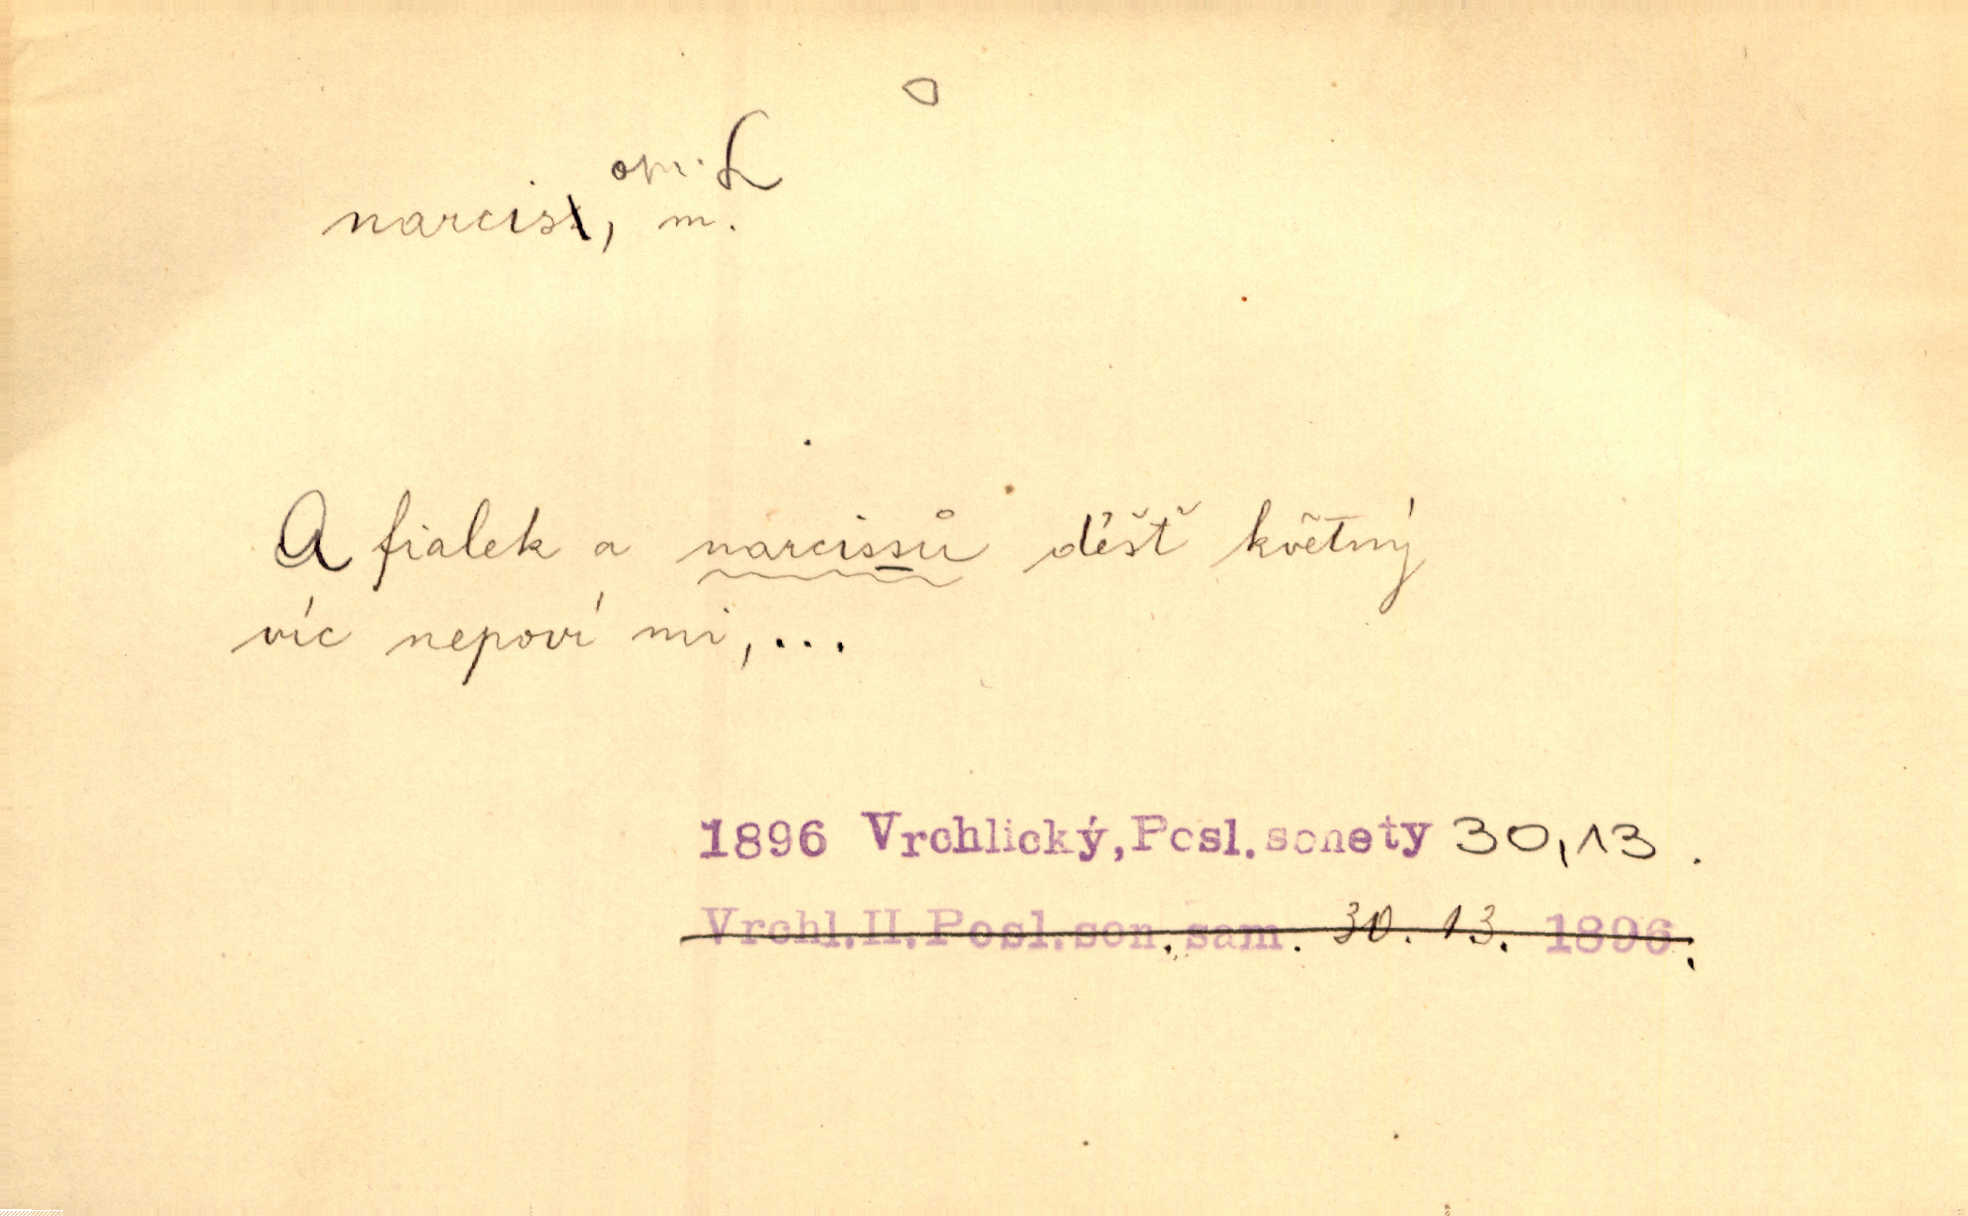 narcis, m.
A fialek a narcissů déšť květný
víc nepoví mi,...
1896 Vrchlický, Posl. sonety 30,13.
Vrchl.II.Posl.son.sam. 30. 13. 1896.